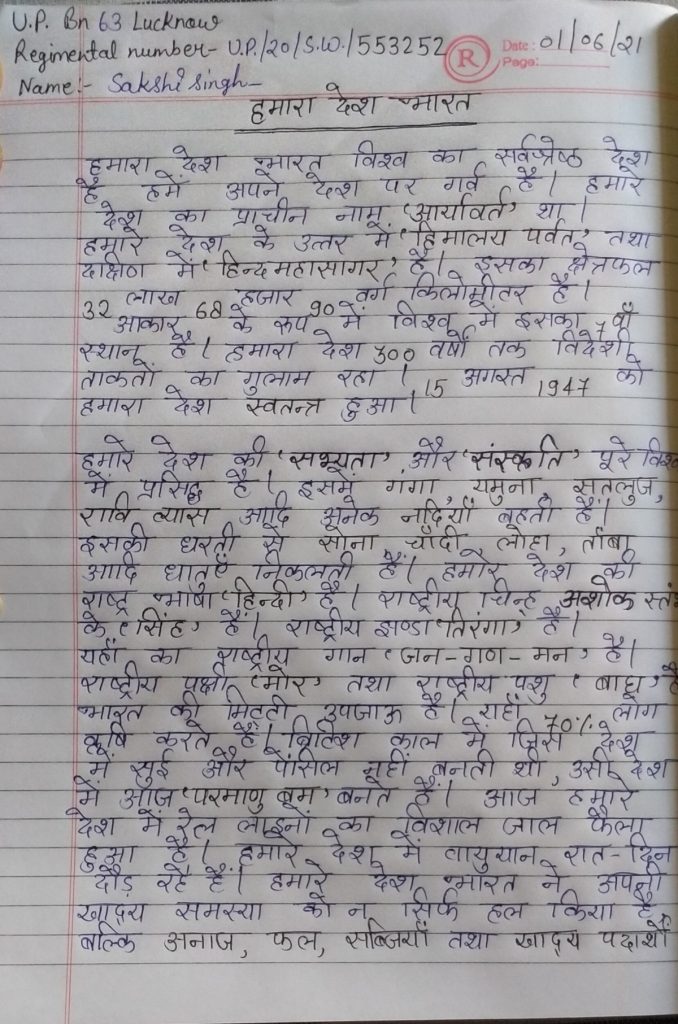 U.P. Bn 63 Lucknow
Regimental number- U.P./20/S.W./553252
R
Date: 01/06/21
Page:
Name:- Sakshi Singh
हमारा देश भारत
हमारा देश भारत विश्व का सर्वश्रेष्ठ देश
है हमें अपने देश पर गर्व है। हमारे
देश का प्राचीन नाम 'आर्यावर्त' था।
हमारे देश के उत्तर में 'हिमालय पर्वत' तथा
दक्षिण में 'हिन्दमहासागर' है। इसका क्षेत्रफल
32 लाख 68 हजार 90 वर्ग किलोमीटर है।
आकार के रूप में विश्व में इसका 7 वाँ
स्थान है। हमारा देश 300 वर्षों तक विदेशी
ताकतों का गुलाम रहा। 15 अगस्त 1947 को
हमारा देश स्वतन्त्र हुआ।
हमारे देश की 'सभ्यता' और 'संस्कृति' पूरे विश्व
में प्रसिद्ध है। इसमें गंगा, यमुना, सतलुज,
रावि व्यास आदि अनेक नदियाँ बहती हैं।
इसकी धरती से सोना चाँदी लोहा, ताँबा
आदि धातुएँ निकलती हैं। हमारे देश की
राष्ट्र भाषा 'हिन्दी' है। राष्ट्रीय चिन्ह अशोक स्तंभ
के 'सिंह' हैं। राष्ट्रीय झण्डा 'तिरंगा' है।
यहाँ का राष्ट्रीय गान 'जन-गण-मन' है।
राष्ट्रीय पक्षी 'मोर' तथा राष्ट्रीय पशु 'बाघ' है
भारत की मिट्टी उपजाऊ है। यहाँ 70% लोग
कृषि करते हैं। ब्रिटिश काल में जिस देश
में सुई और पेंसिल नहीं बनती थी, उसी देश
में आज 'परमाणु बम' बनते हैं। आज हमारे
देश में रेल लाइनों का विशाल जाल फैला
हुआ है। हमारे देश में वायुयान रात-दिन
दौड़ रहे हैं। हमारे देश भारत ने अपनी
खाद्य समस्या को न सिर्फ हल किया है,
बल्कि अनाज, फल, सब्जियाँ तथा खाद्य पदार्थो